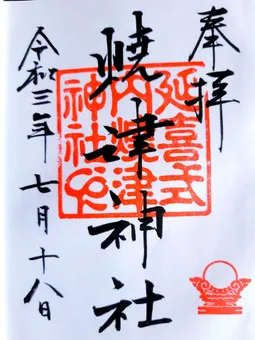 奉拝
焼津神社
延喜式
内焼津
神社印
令和三年七月十八日